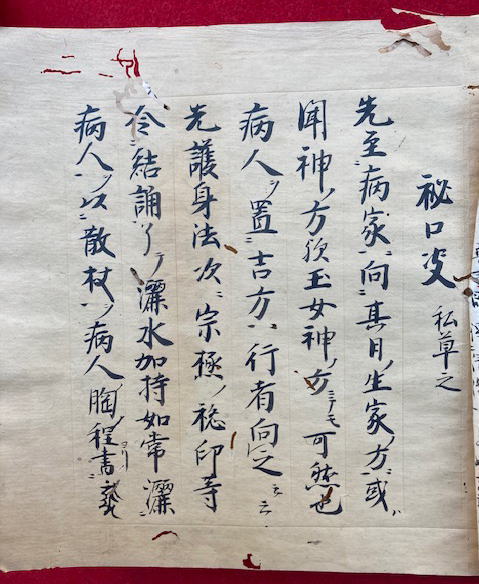 秘口决 私草之
先至ニ病家ニ向ニ其月ノ生家ノ方ニ或ハ
聞神ノ方須玉女神ノ方ニテモ可然也
病人ヲ置ニ吉方ニ行者向之云云
先護身法次ニ宗極ノ秘印等
令ニ結誦了テ灑水加持如常灑
病人ヲ以ニ散杖ヲ病人ノ胸ノ程書